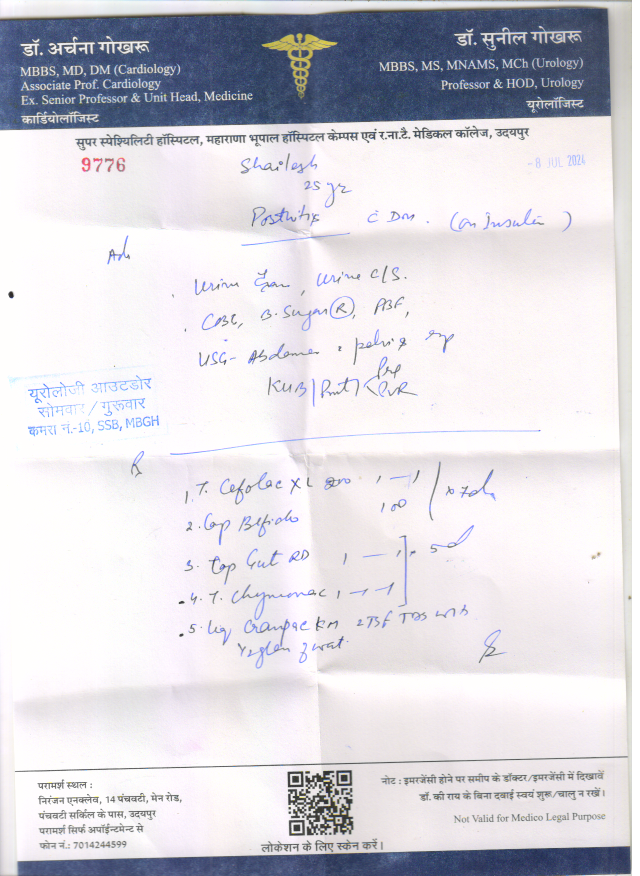 डॉ. अर्चना गोखरू
MBBS, MD, DM (Cardiology)
Associate Prof. Cardiology
Ex. Senior Professor & Unit Head, Medicine
कार्डियोलॉजिस्ट
डॉ. सुनील गोखरू
MBBS, MS, MNAMS, MCh (Urology)
Professor & HOD, Urology
यूरोलॉजिस्ट
सुपर स्पेश्यिलिटी हॉस्पिटल, महाराणा भूपाल हॉस्पिटल केम्पस एवं र.ना.टै. मेडिकल कॉलेज, उदयपुर
9776
Shailesh
-8 JUL 2024
25 yr
Posthitis c DM. (on Insulin)
Adv
Urine Exam, Urine C/S.
CBC, B. Sugar (R), PBF,
USG- Abdomen + pelvis exp
KUB/Prost/ Pre
PVR
यूरोलॉजी आउटडोर
सोमवार / गुरूवार
कमरा नं.-10, SSB, MBGH
R
1. T. Cefolac XL 200 1 — 1
2. Cap Bifido 100 x 7d
3. Cap Gut RD 1 — 1 x 5d
4. T. Chymonac 1 — 1
5. Liq Cranpac KM 2TSF TDS with
1/2 glass of wat.
परामर्श स्थल :
निरंजन एनक्लेव, 14 पंचवटी, मेन रोड,
पंचवटी सर्किल के पास, उदयपुर
परामर्श सिर्फ अपॉईन्टमेन्ट से
फोन नं.: 7014244599
लोकेशन के लिए स्केन करें।
नोट : इमरजेंसी होने पर समीप के डॉक्टर/इमरजेंसी में दिखावें
डॉ. की राय के बिना दवाई स्वयं शुरू/चालु न रखें।
Not Valid for Medico Legal Purpose